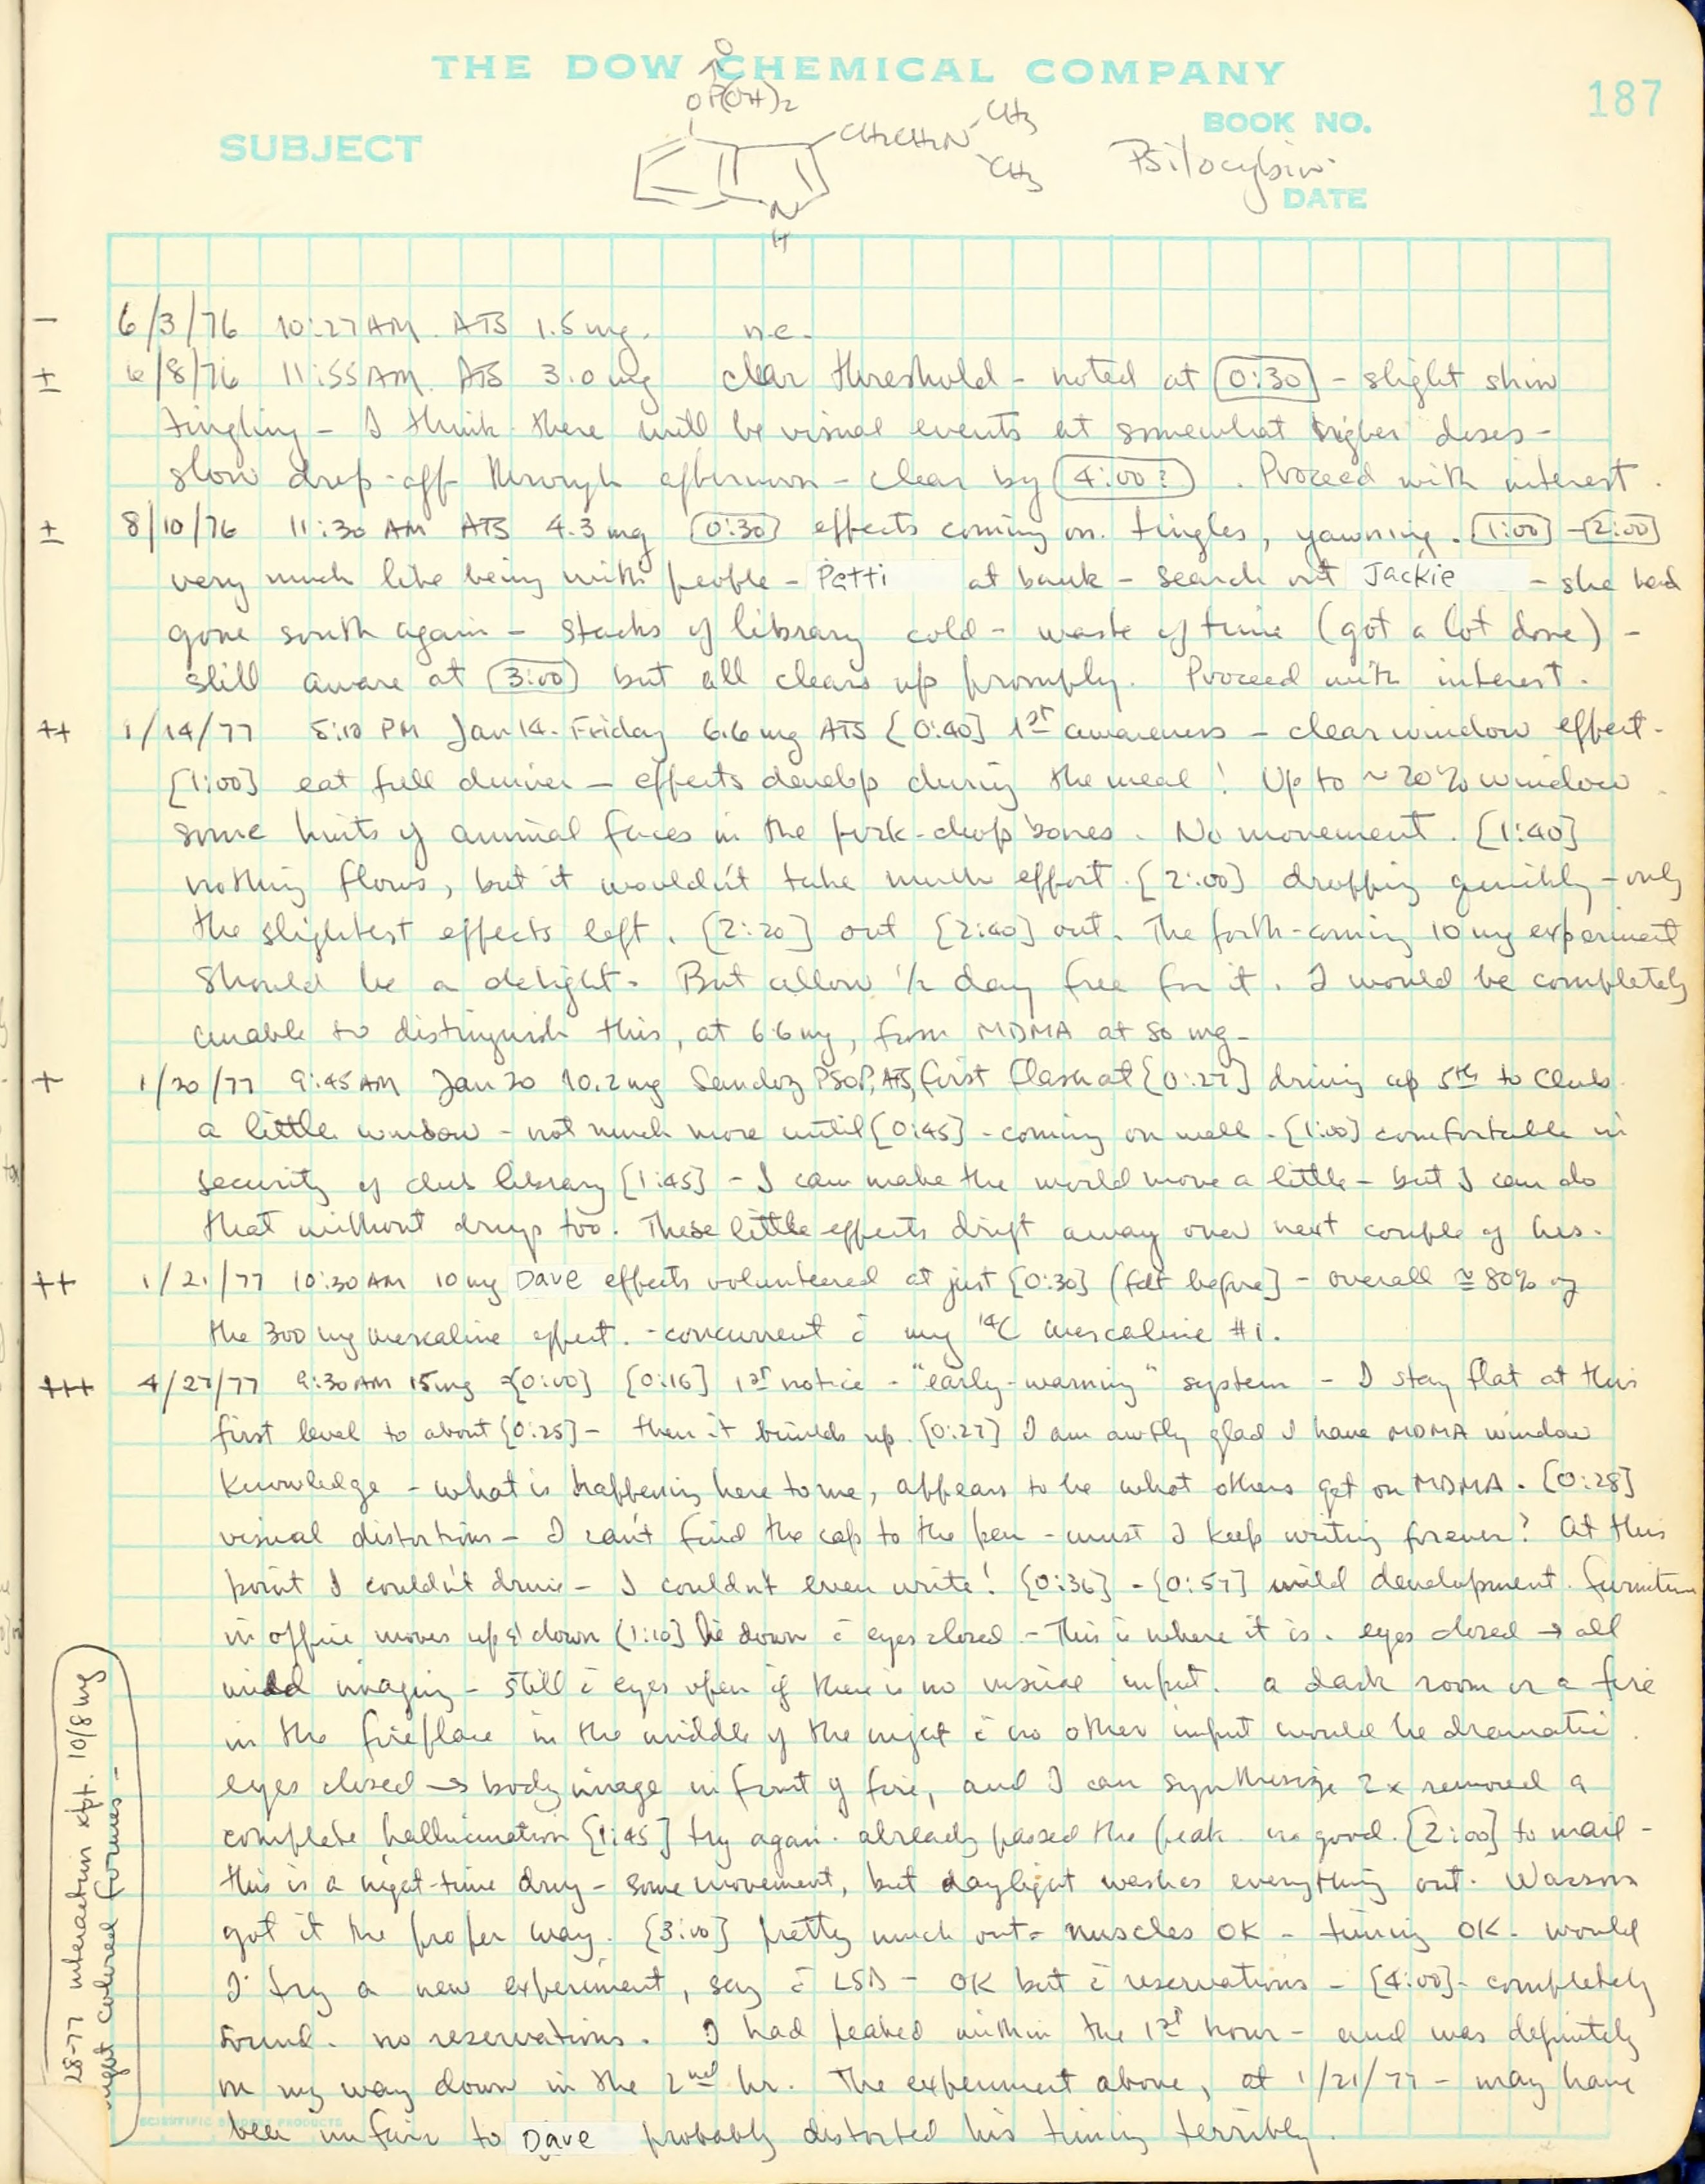 THE DOW CHEMICAL COMPANY
187
O
OP(OH)2
CH2CH2N
CH3
CH3
N
H
SUBJECT
BOOK NO.
Psilocybin
DATE
– 6/3/76 10:27AM. ATS 1.5 mg. n.e.
± 6/8/76 11:55AM. ATS 3.0 mg clear threshold - noted at [0:30] - slight skin
tingling - I think there will be visual events at somewhat higher doses -
slow drop-off through afternoon - clear by [4:00?]. Proceed with interest.
± 8/10/76 11:30 AM ATS 4.3 mg [0:30] effects coming on. tingles, yawning. [1:00] - [2:00]
very much like being with people - Patti at bank - search out Jackie - she had
gone south again - stacks of library cold - waste of time (got a lot done) -
still aware at [3:00] but all clears up promply. Proceed with interest.
++ 1/14/77 5:10 PM Jan 14. Friday 6.6 mg ATS [0:40] 1st awareness - clear window effect.
[1:00] eat full dinner - effects develop during the meal! Up to ~20% window
some hints of animal faces in the pork-chop bones. No movement. [1:40]
nothing flows, but it wouldn't take much effort. [2:00] dropping quickly - only
the slightest effects left. [2:20] out [2:40] out. The forth-coming 10 mg experiment
should be a delight. But allow 1/2 day free for it. I would be completely
unable to distinguish this, at 6.6 mg, from MDMA at 80 mg.
+ 1/20/77 9:45 AM Jan 20 10.2 mg Sandoz PSOP, ATS, first flash at [0:27] driving up 5th to Club
a little window - not much more until [0:45] - coming on well. [1:00] comfortable in
security of club library [1:45] - I can make the world move a little - but I can do
that without drugs too. These little effects drift away over next couple of hrs.
++ 1/21/77 10:30 AM 10 mg Dave effects volunteered at just [0:30] (felt before] - overall ≅ 80% of
the 300 mg mescaline effect. - concurrent c̄ my 14C mescaline #1.
+++ 4/27/77 9:30 AM 15 mg = [0:00] [0:16] 1st notice - "early-warning" system - I stay flat at this
first level to about [0:25] - then it builds up. [0:27] I am awfly glad I have MDMA window
knowledge - what is happening here to me, appears to be what others get on MDMA. [0:28]
visual distortions - I can't find the cap to the pen - must I keep writing forever? At this
point I couldn't drive - I couldn't even write! [0:36] - [0:57] mild development. furniture
in office moves up & down [1:10] lie down c̄ eyes closed - This is where it is. eyes closed → all
mild imaging - still c̄ eyes open if there is no visual input. a dark room or a fire
in the fireplace in the middle of the night c̄ no other input would be dramatic.
eyes closed → body image in front of fire, and I can synthesize 2x removed a
complete hallucination [1:45] try again. already passed the peak no good. [2:00] to mail -
this is a night-time drug - some movement, but daylight washes everything out. Wasson
got it the proper way. [3:00] pretty much out - muscles OK - timing OK. would
I try a new experiment, say c̄ LSD - OK but c̄ reservations - [4:00] - completely
sound. no reservations. I had peaked within the 1st hour - and was definitely
on my way down in the 2nd hr. The experiment above, at 1/21/77 - may have
been unfair to Dave probably distorted his timing terribly.
28-77 interaction xpt. 10/8 mg
colored furmes -
SCIENTIFIC PRODUCTS